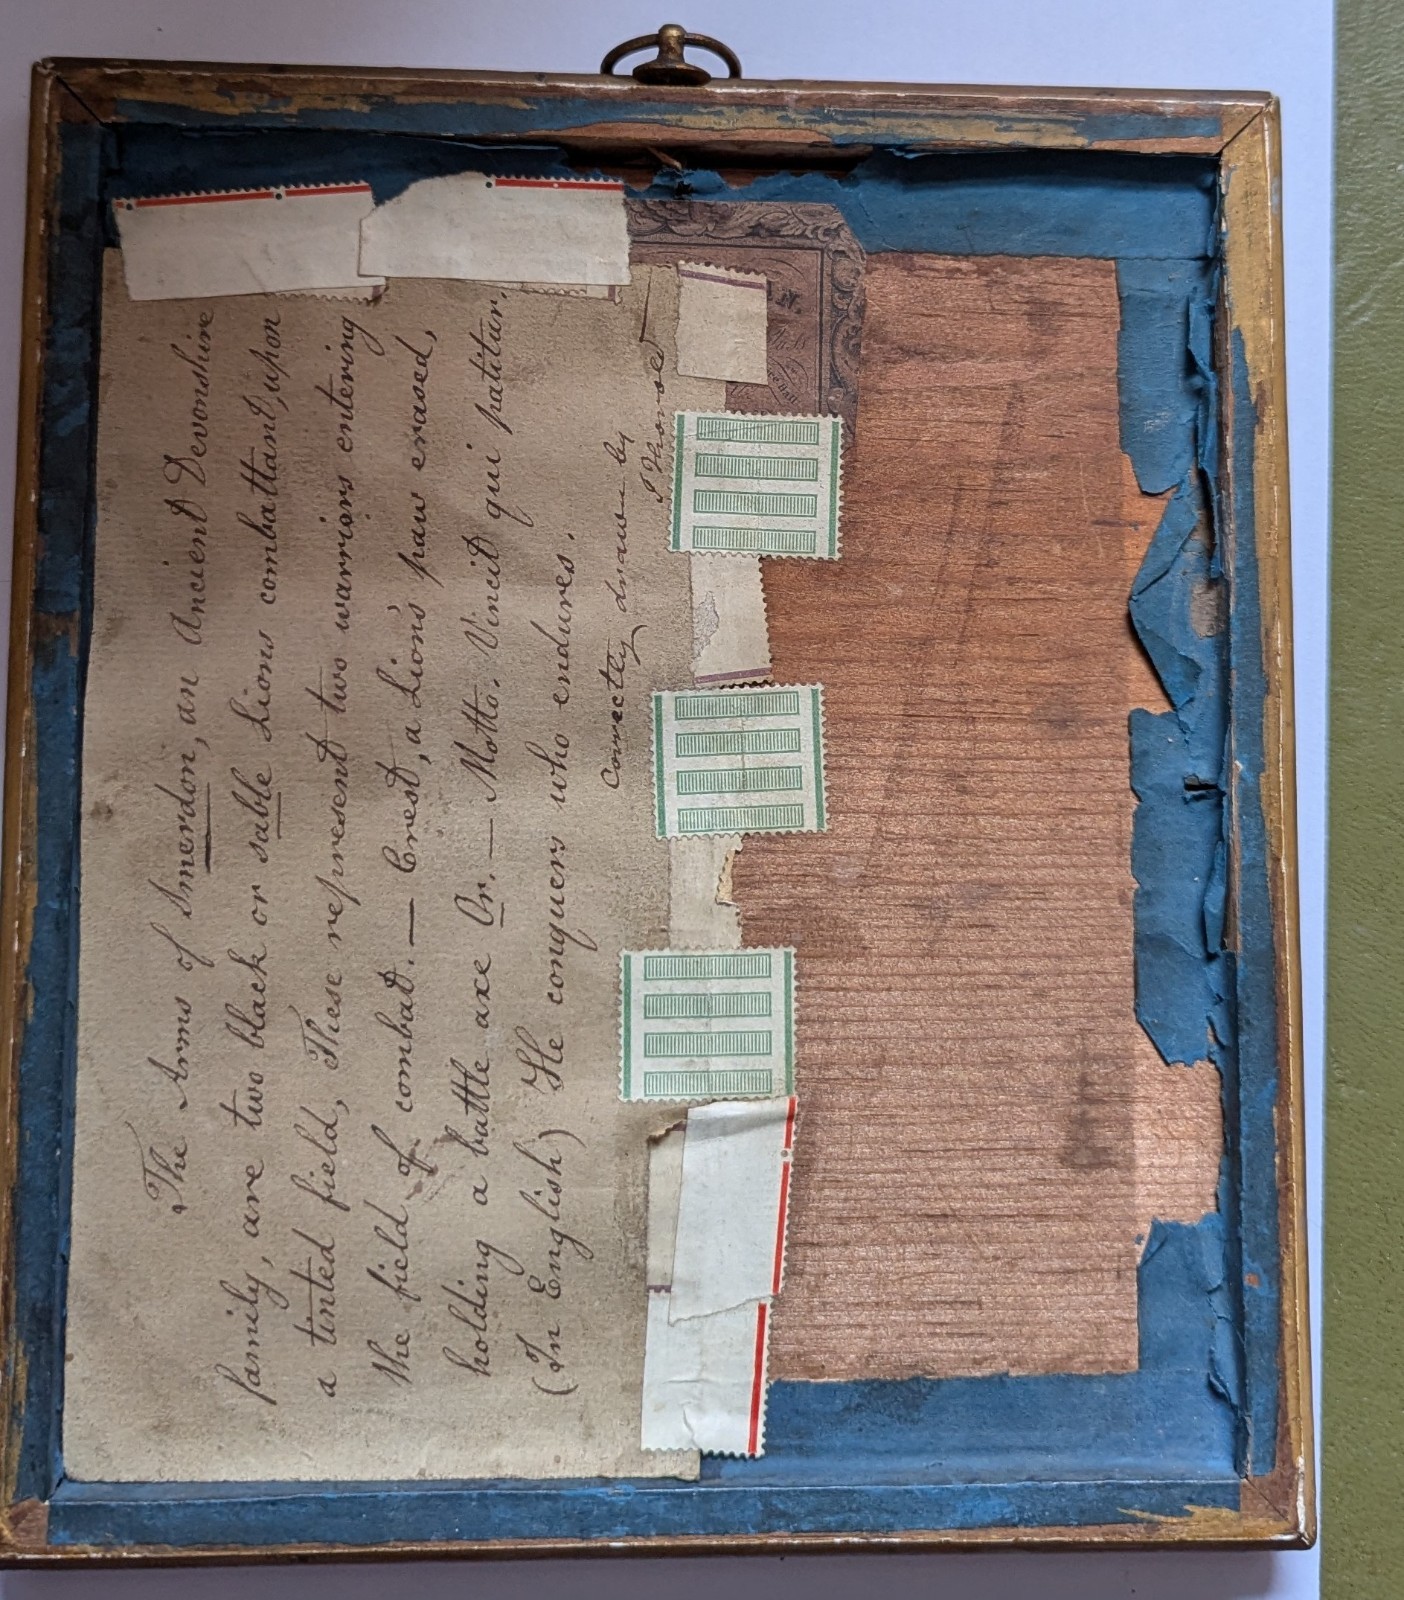 The Arms of Smerdon, an Ancient Devonshire
family, are two black or sable Lions combattant, upon
a tinted field, These represent two warriors entering
the field of combat. — Crest, a Lion's paw erased,
holding a battle axe Or. — Motto. Vincit qui patitur.
(In English) He conquers who endures.
Correctly drawn by